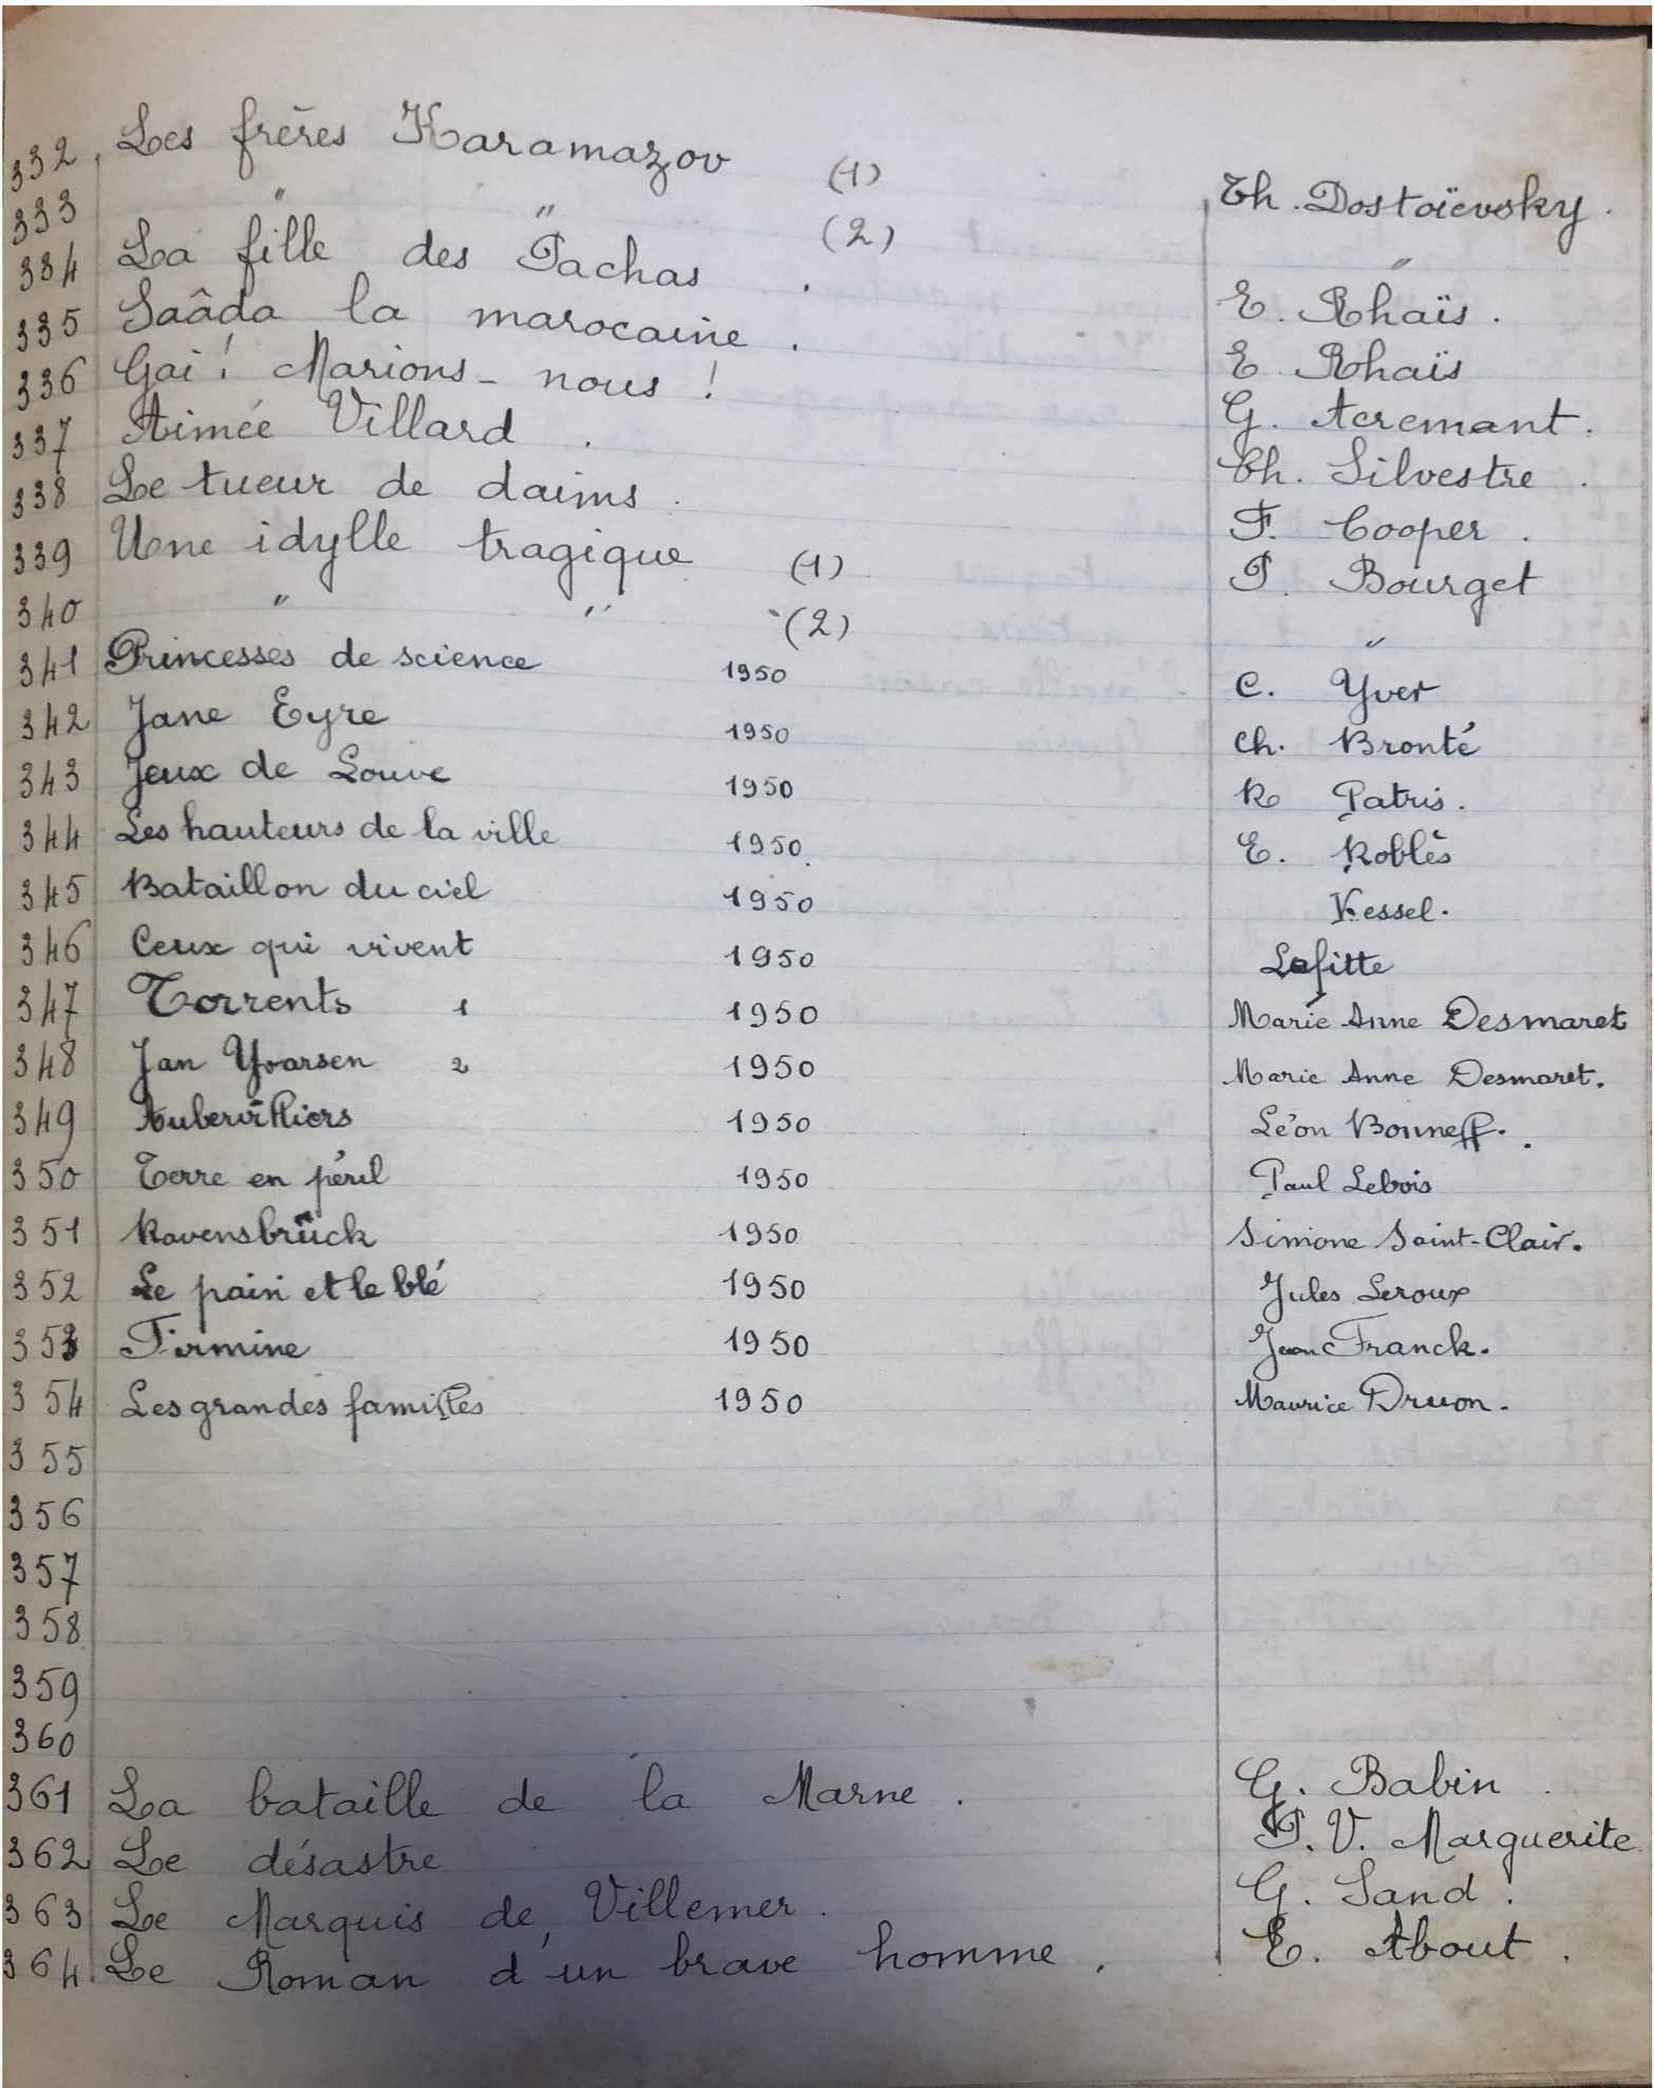 332. Les frères Karamazov (1) Th. Dostoïevsky.
333 " " (2) "
334 La fille des Pachas. E. Rhaïs.
335 Saâda la marocaine. E. Rhaïs
336 Gai! Marions-nous! G. Acremant.
337 Aimée Villard. Ch. Silvestre.
338 Le tueur de daims. F. Cooper.
339 Une idylle tragique (1) P. Bourget
340 " " (2) "
341 Princesses de science 1950 C. Yver
342 Jane Eyre 1950 Ch. Bronté
343 Jeux de Louve 1950 R Patris.
344 Les hauteurs de la ville 1950. E. Roblès
345 Bataillon du ciel 1950 Kessel.
346 Ceux qui vivent 1950 Lafitte
347 Torrents 1 1950 Marie Anne Desmaret
348 Jan Yvarsen 2 1950 Marie Anne Desmaret.
349 Aubervilliers 1950 Léon Bonneff.
350 Terre en péril 1950 Paul Lebois
351 Ravensbrück 1950 Simone Saint-Clair.
352 Le pain et le blé 1950 Jules Leroux
353 Firmine 1950 Jean Franck.
354 Les grandes familles 1950 Maurice Druon.
355
356
357
358
359
360
361 La bataille de la Marne. G. Babin.
362 Le désastre P. V. Marguerite
363 Le Marquis de Villemer. G. Sand.
364. Le Roman d'un brave homme. E. About.